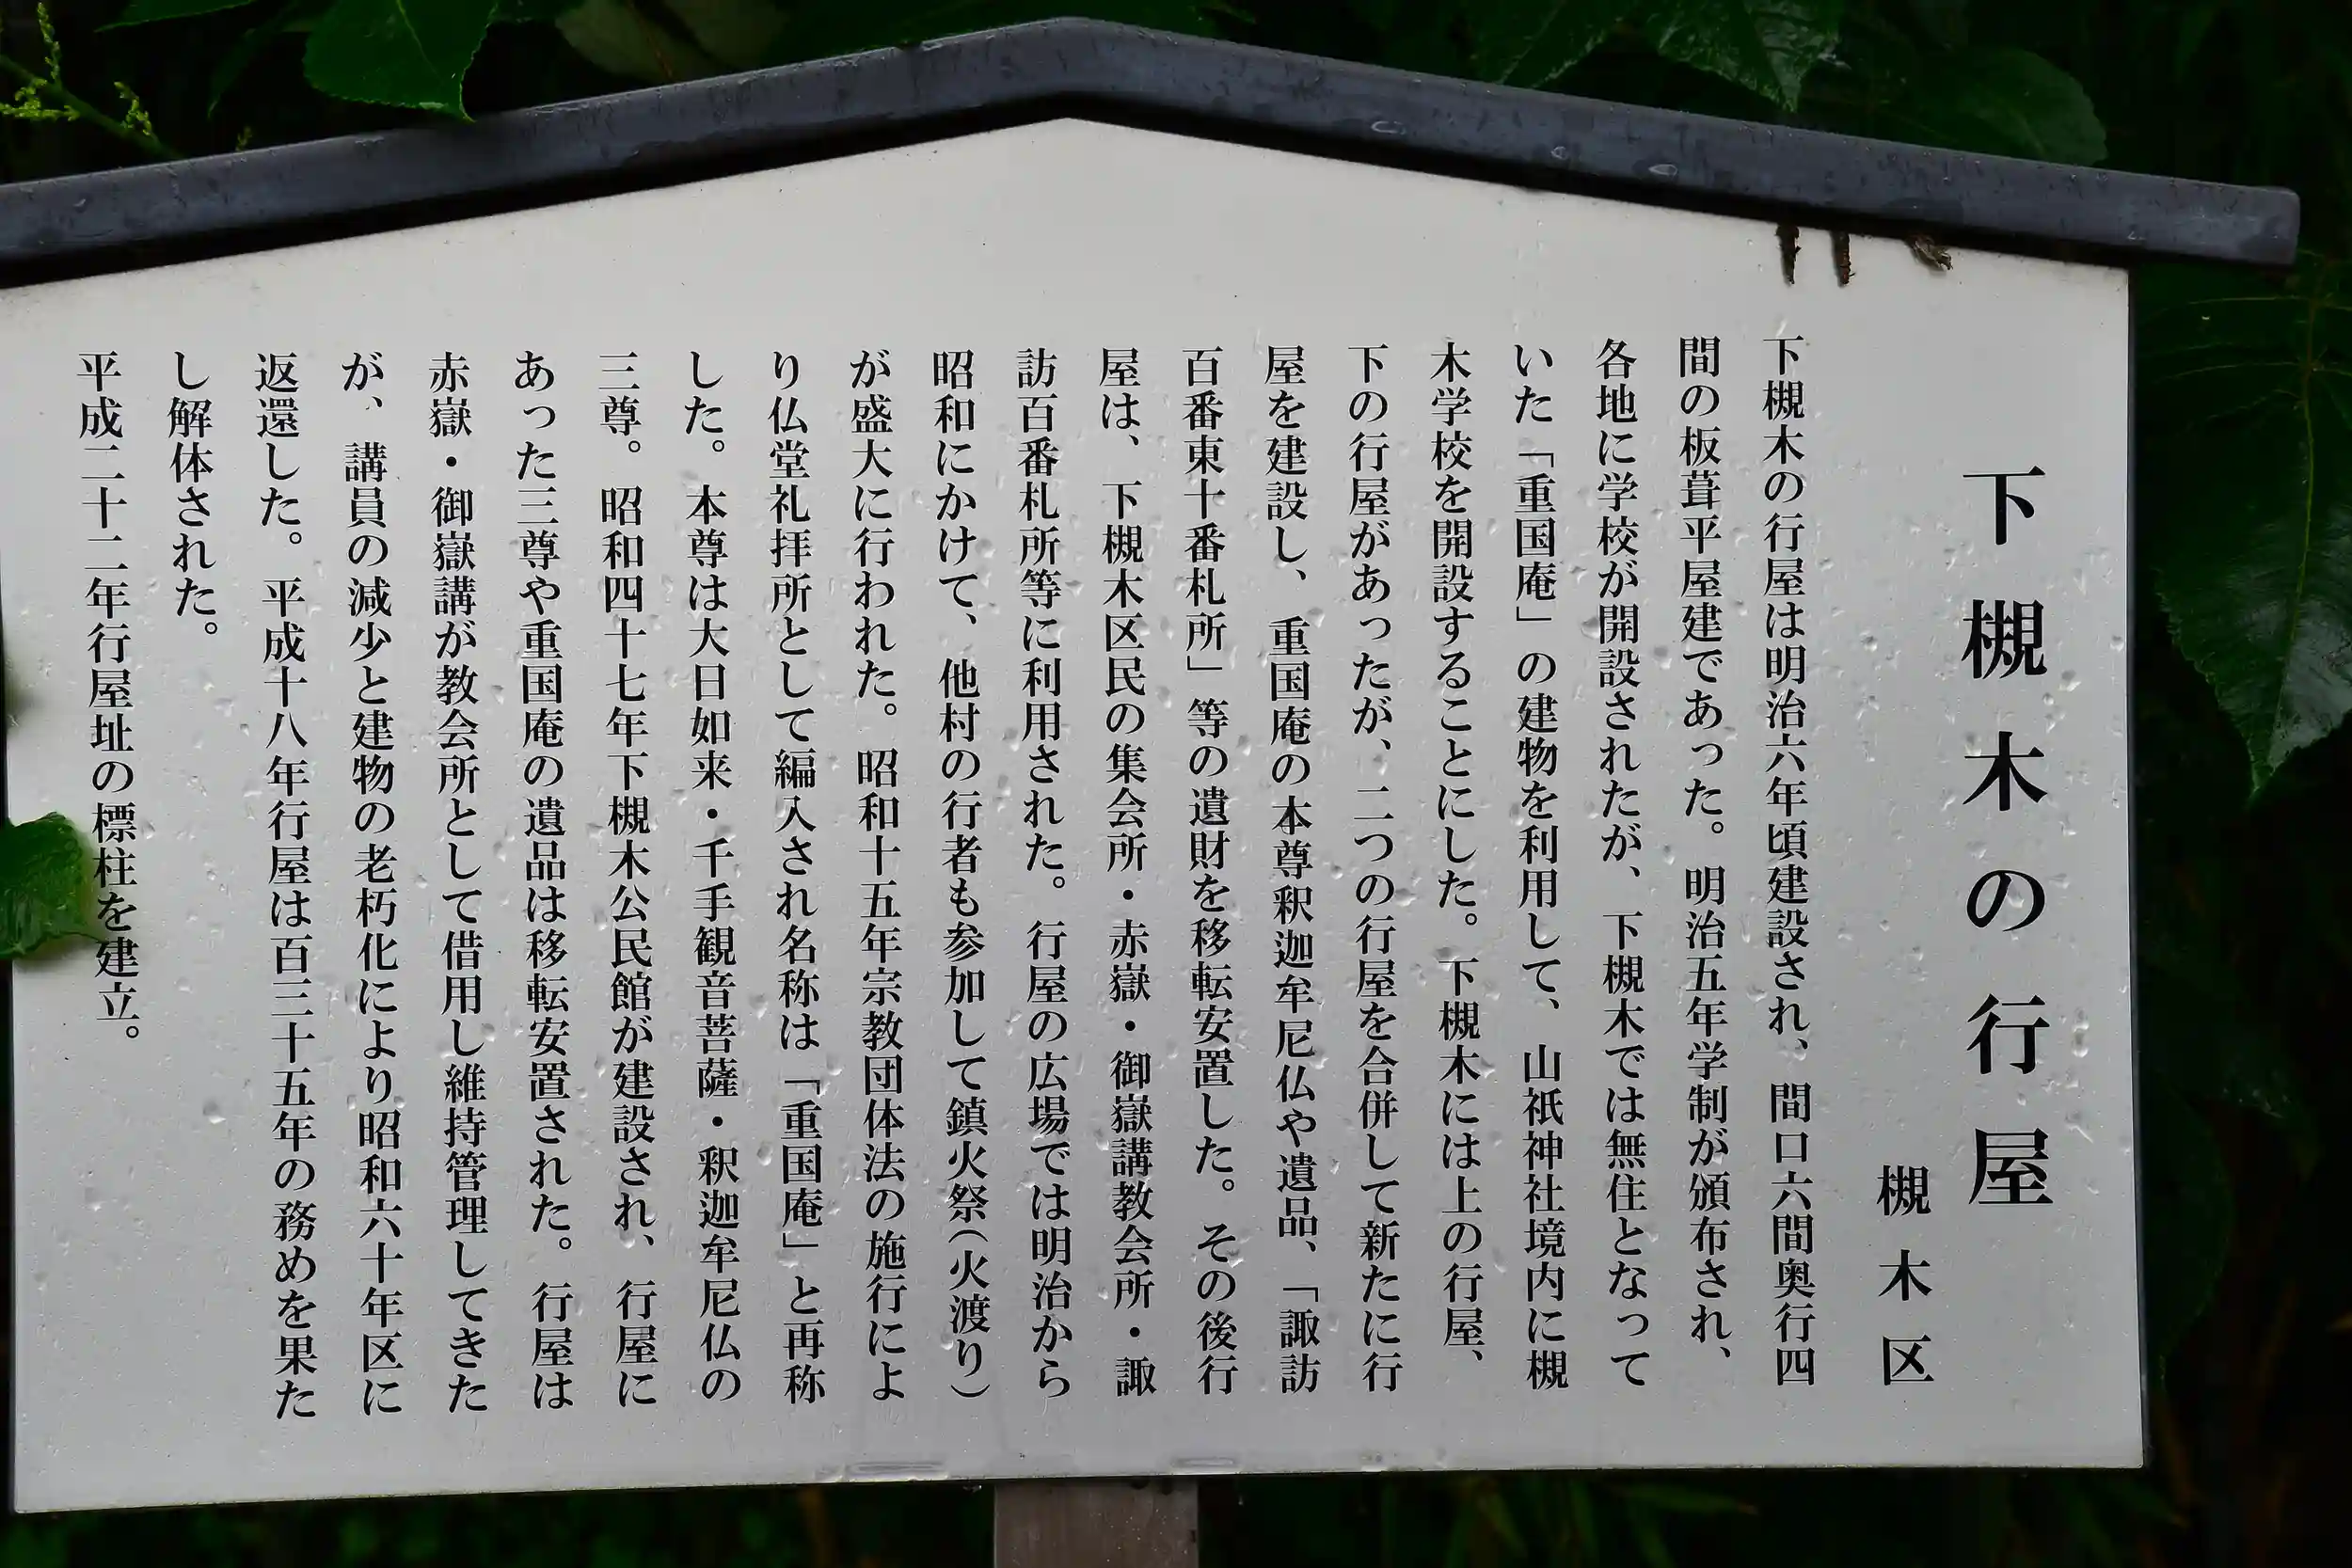 下槻木の行屋
槻木区
下槻木の行屋は明治六年頃建設され、間口六間奥行四
間の板葺平屋建であった。明治五年学制が頒布され、
各地に学校が開設されたが、下槻木では無住となって
いた「重国庵」の建物を利用して、山祇神社境内に槻
木学校を開設することにした。下槻木には上の行屋、
下の行屋があったが、二つの行屋を合併して新たに行
屋を建設し、重国庵の本尊釈迦牟尼仏や遺品、「諏訪
百番東十番札所」等の遺財を移転安置した。その後行
屋は、下槻木区民の集会所・赤嶽・御嶽講教会所・諏
訪百番札所等に利用された。行屋の広場では明治から
昭和にかけて、他村の行者も参加して鎮火祭(火渡り)
が盛大に行われた。昭和十五年宗教団体法の施行によ
り仏堂礼拝所として編入され名称は「重国庵」と再称
した。本尊は大日如来・千手観音菩薩・釈迦牟尼仏の
三尊。昭和四十七年下槻木公民館が建設され、行屋に
あった三尊や重国庵の遺品は移転安置された。行屋は
赤嶽・御嶽講が教会所として借用し維持管理してきた
が、講員の減少と建物の老朽化により昭和六十年区に
返還した。平成十八年行屋は百三十五年の務めを果た
し解体された。
平成二十二年行屋址の標柱を建立。